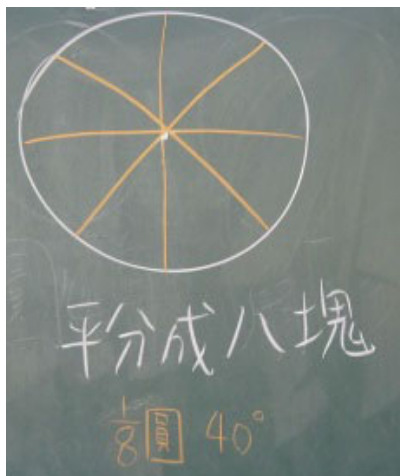 平分成八塊
1/8圓 40°